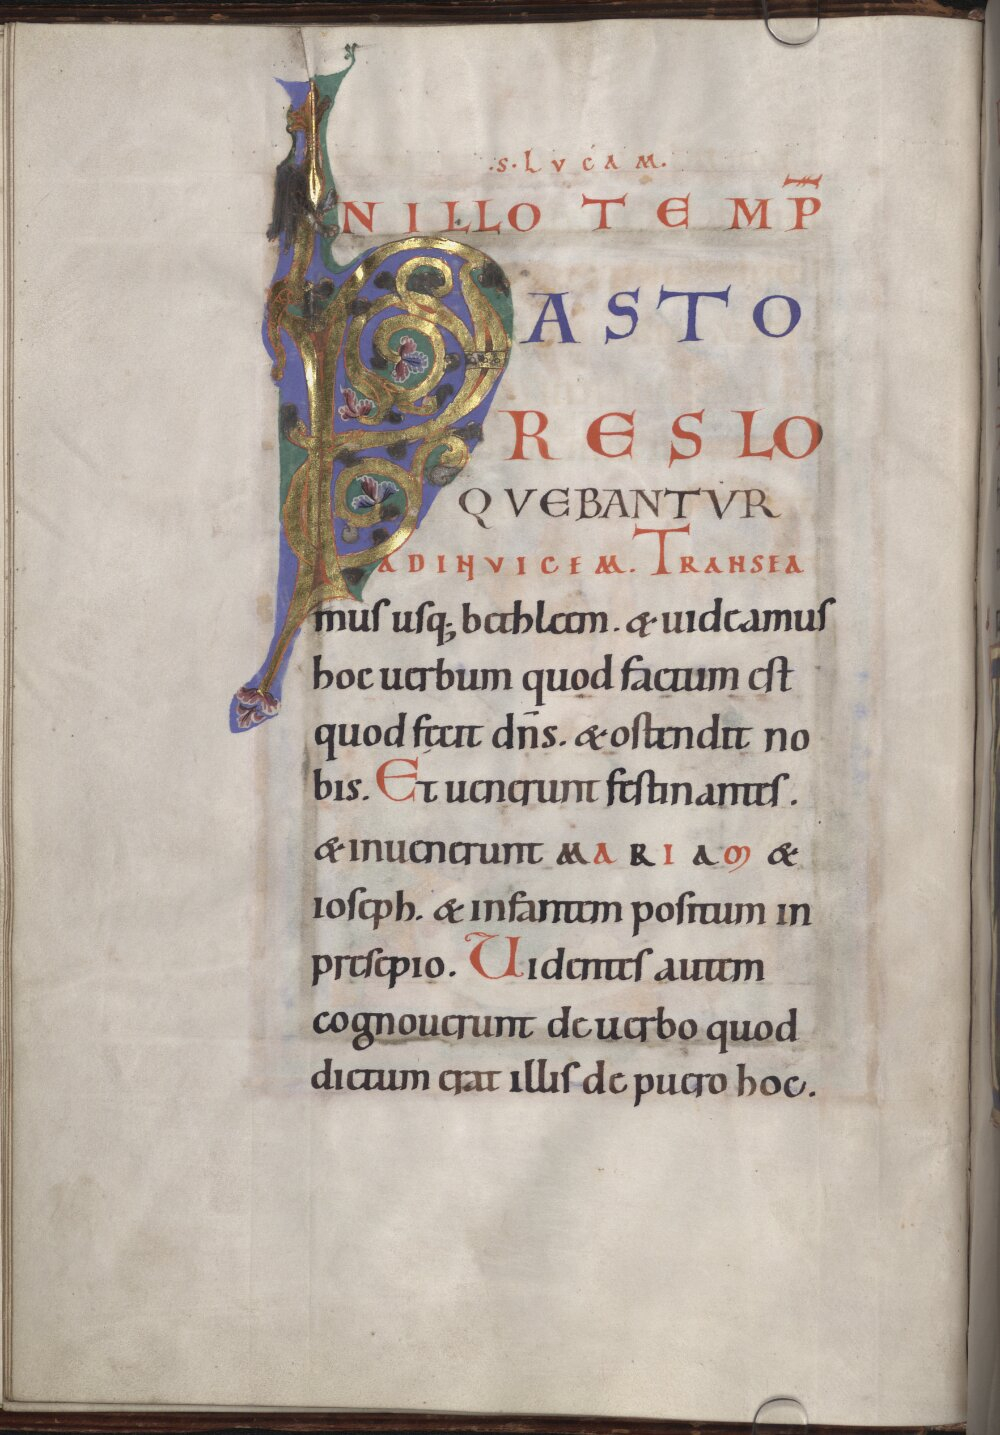 ·S·LVCAM·
INILLO TEMP̄
PASTO
RES LO
QVEBANTVR
ADINVICEM. TRANSEA
mus usq; bethleem. & uideamus
hoc uerbum quod factum est
quod fecit dn̄s. & ostendit no
bis. Et uenerunt festinantes.
& inuenerunt MARIAM &
ioseph. & infantem positum in
presepio. Uidentes autem
cognouerunt de uerbo quod
dictum erat illis de puero hoc.